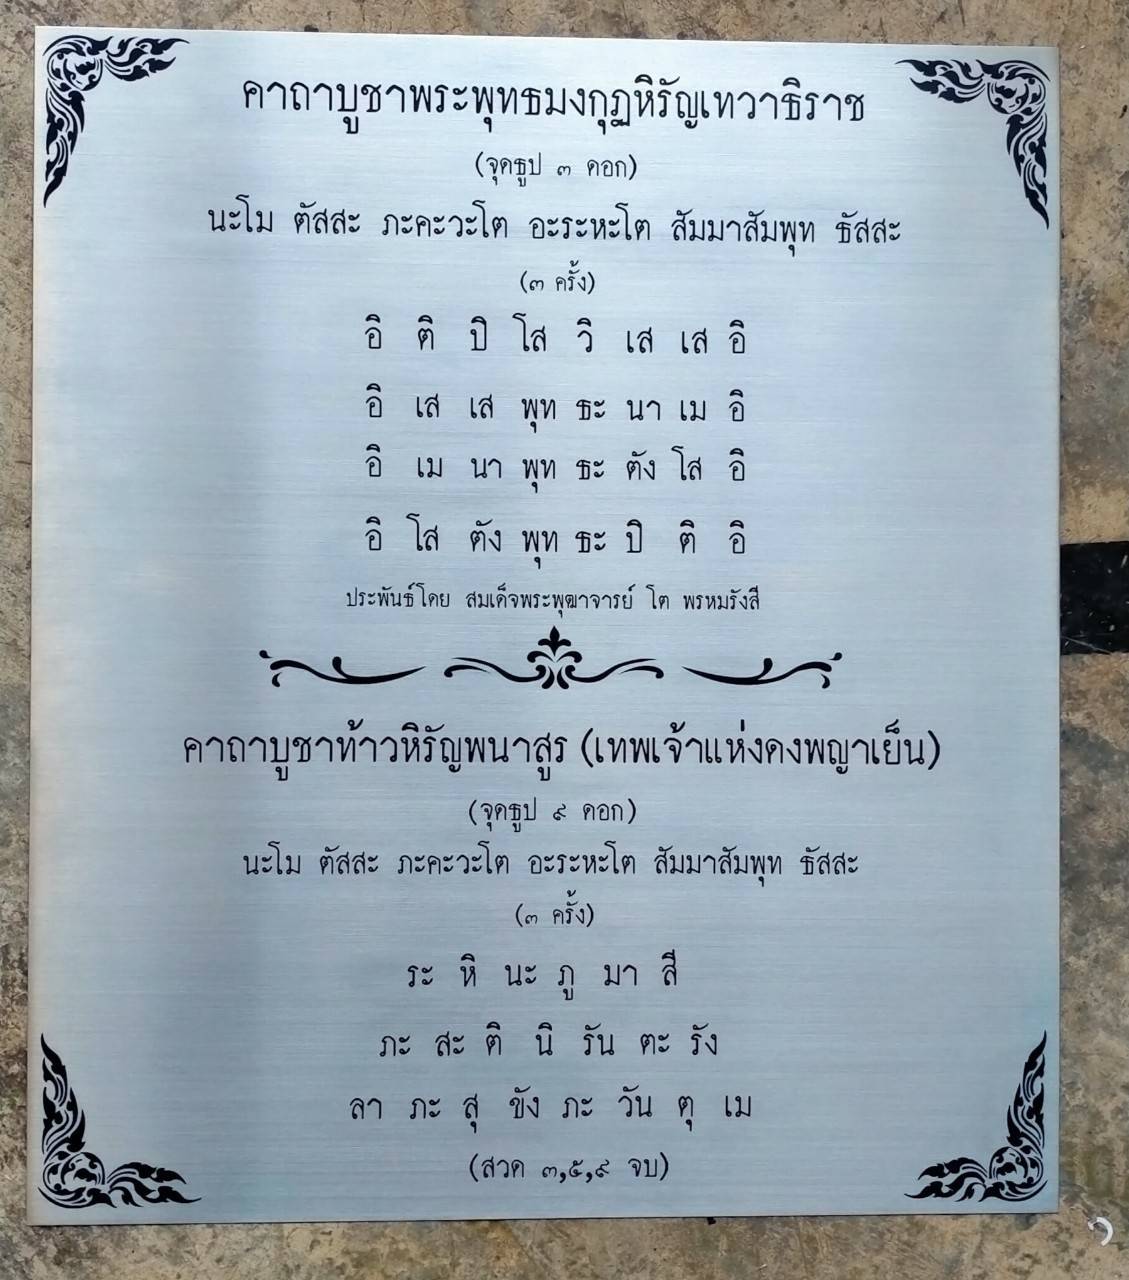 คาถาบูชาพระพุทธมงกุฏหิรัญเทวาธิราช
(จุดธูป ๓ ดอก)
นะโม ตัสสะ ภะคะวะโต อะระหะโต สัมมาสัมพุท ธัสสะ
(๓ ครั้ง)
อิ ติ ปิ โส วิ เส เส อิ
อิ เส เส พุท ธะ นา เม อิ
อิ เม นา พุท ธะ ตัง โส อิ
อิ โส ตัง พุท ธะ ปิ ติ อิ
ประพันธ์โดย สมเด็จพระพุฒาจารย์ โต พรหมรังสี
คาถาบูชาท้าวหิรัญพนาสูร (เทพเจ้าแห่งดงพญาเย็น)
(จุดธูป ๙ ดอก)
นะโม ตัสสะ ภะคะวะโต อะระหะโต สัมมาสัมพุท ธัสสะ
(๓ ครั้ง)
ระ หิ นะ ภู มา สี
ภะ สะ ติ นิ รัน ตะ รัง
ลา ภะ สุ ขัง ภะ วัน ตุ เม
(สวด ๓,๕,๙ จบ)